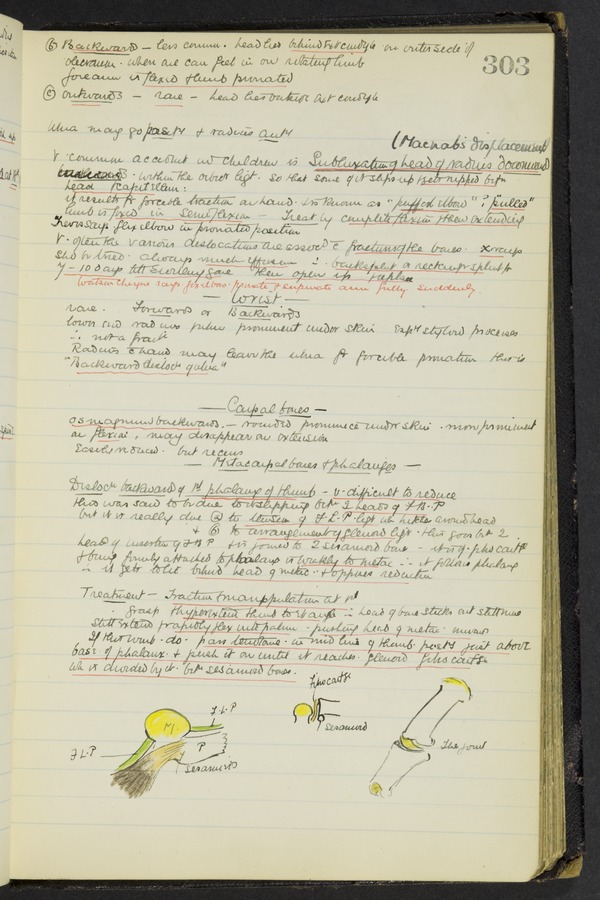 303
(b) Backwards – less common. head lies behind Ext condyle on outer side of
olecranon. when we can feel it on rotating limb
forearm is flexed & hand pronated
(c) outwards – rare – head lies outside Ext condyle
Ulna may go post & radius ant
(Macnab's displacement)
V. common accident in children is Subluxation of head of radius downwards
within the orbic ligt. so that some of it slips up & gets nipped betn
head & capitellum:
it results fr forcible traction on hand. is known as "pulled elbow"
limb is fixed in Semiflexion – Treat by complete flexion & then extending
says flex elbow in pronated position
V. often the various dislocations are assoc c fractures of the bones. x rays
shd be used. always much effusion ∴ backsplint or rectangr splint fr
7 – 10 days till swelling gone then open up & replace
Watson Cheyne says flex elbow & pronate & supinate arm fully suddenly
— Wrist —
rare. Forwards or Backwards
lower end radius & ulna prominent under skin. Expt styloid processes
∴ not a fract
Radius & hand may leave the ulna fr forcible pronation this is
"Backward disloc of ulna"
— Carpal bones —
os magnum backwards. – rounded prominence under skin. more prominent
on flexion, may disappear on extension
Easily reduced. but recurs
— Metacarpal bones & phalanges —
Disloc backward of 1st phalanx of thumb – v. difficult to reduce
this was said to be due to it slipping betn 2 heads of F.B.P
but it is really due (a) to tension of F.L.P wh hitches around head
& (b) to arrangement of glenoid ligt. this goes betn 2
heads of insertion of F B P & is joined to 2 sesamoid bones – it is of fibro cartge
& being firmly attached to phalanx & weakly to metac ∴ it follows phalanx
∴ it gets to lie behind head of metac. & opposes reduction
Treatment – Traction & manipulation at 1st
∴ grasp & hyperextend thumb to Rt angle ∴ head of bone sticks out still more
still extend & rapidly flex into palm – pushing head of metac. inwards
If this wont. do. pass tenotome in mid line of thumb post just above
base of phalanx & push it on until it reaches glenoid fibro cartge
wh is divided by it. betn sesamoid bones.
Fibro cartge
Sesamoid
F.L.P
M.
P
F L.P
Sesamoids
The joint